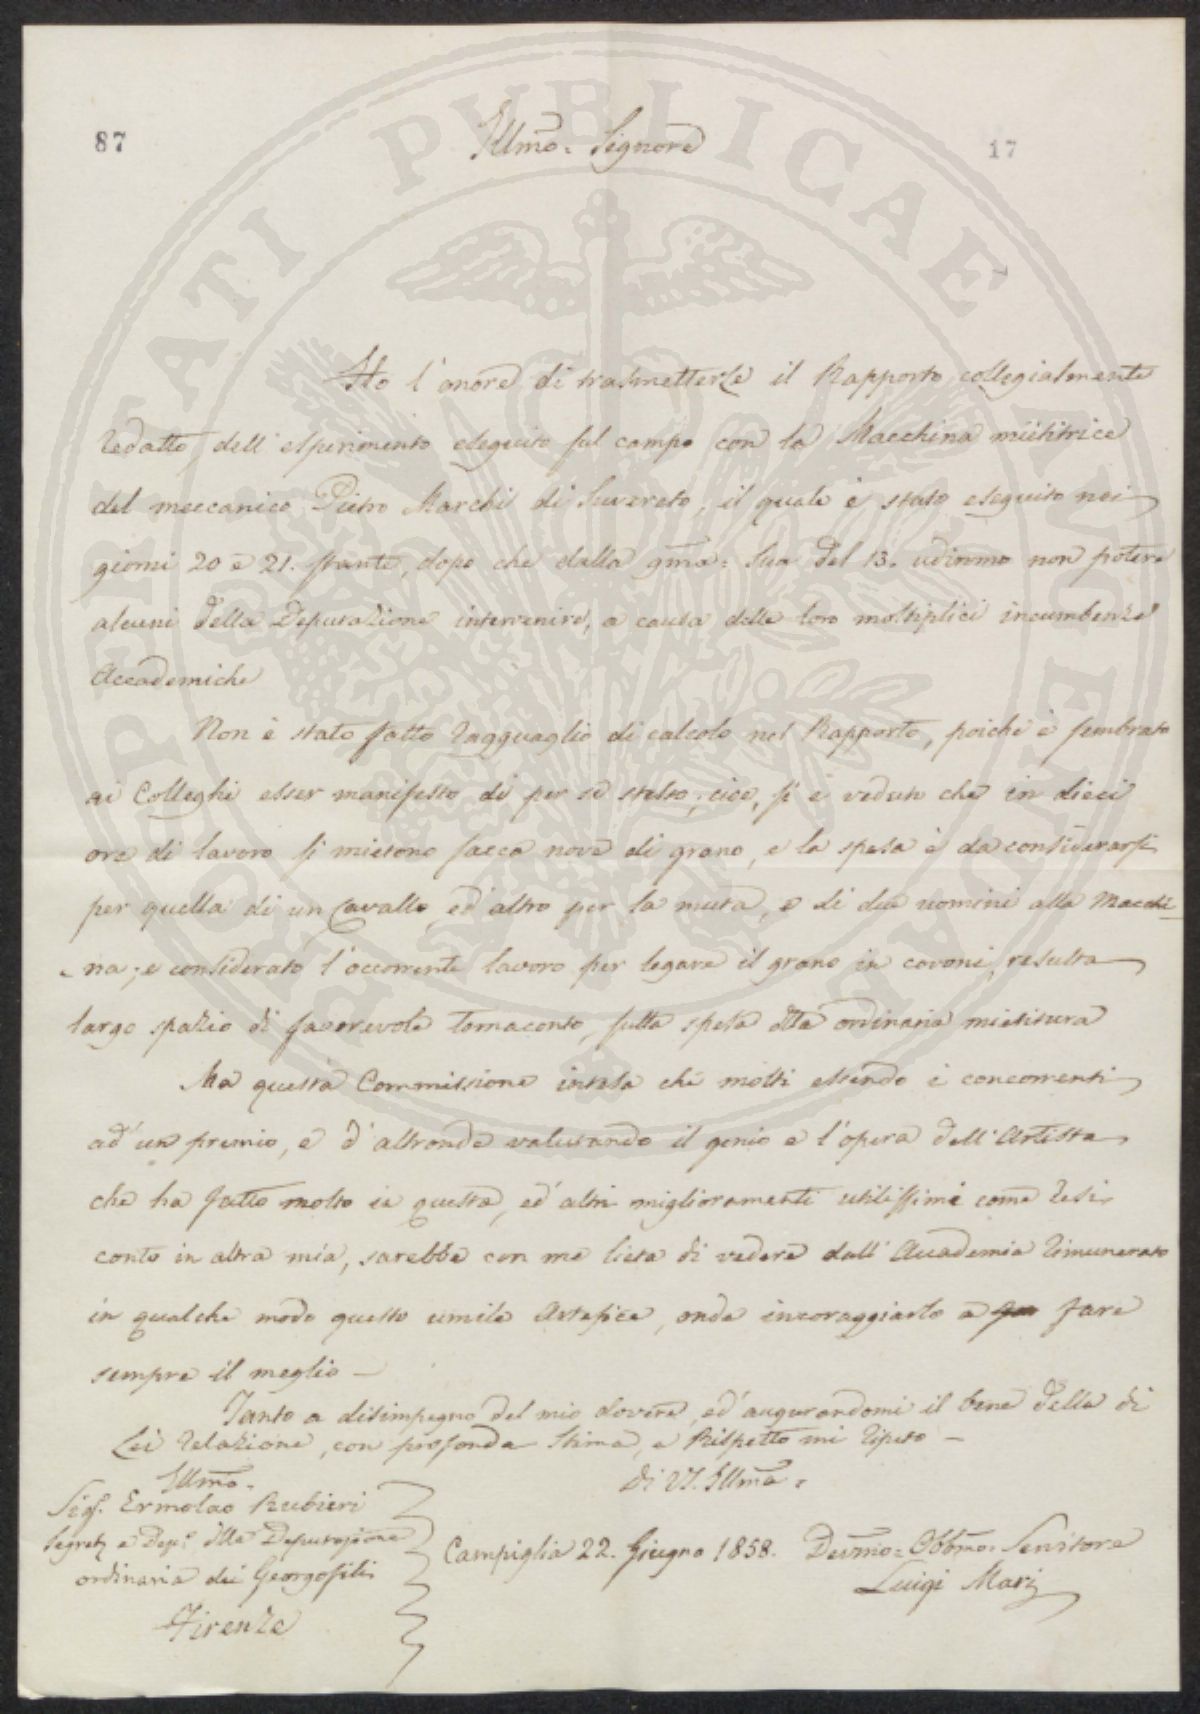 87
17
Illmo. Signore
Ho l'onore di trasmetterLe il Rapporto collegialmente
redatto, dell'esperimento eseguito sul campo con la Macchina mietitrice
del meccanico Pietro Marchi di Suvereto, il quale è stato eseguito nei
giorni 20 e 21. stante, dopo che dalla gma: Sua del 13. udimmo non potere
alcuni della Deputazione intervenire, a causa delle loro moltiplici incumbenze
Accademiche
Non è stato fatto ragguaglio di calcolo nel Rapporto, poiche è sembrato
ai Colleghi esser manifesto di per se stesso; cioe, si è veduto che in dieci
ore di lavoro si mietono sacca nove di grano, e la spesa è da considerarsi
per quella di un Cavallo, ed'altro per la muta, e di due uomini alla Macchi-
-na; e considerato l'occorrente lavoro per legare il grano in covoni, resulta
largo spazio di favorevole tornaconto, sulla spesa dlla ordinaria mietitura
Ma questa Commissione intesa che molti essendo i concorrenti
ad'un premio, e d'altronde valutando il genio e l'opera dell'Artista
che ha fatto molto in questa, ed'altri miglioramenti utilissimi come resi
conto in altra mia, sarebbe con me lieta di vedere dall'Accademia rimunerato
in qualche modo questo umile Artefice, onde incoraggiarlo a fare
sempre il meglio —
Tanto a disimpegno del mio dovere, ed'augurandomi il bene della di
Lei relazione, con profonda Stima, e Rispetto mi ripeto —
Di VS. Illma.
Illmo.
Sigr. Ermolao Rubieri
Segret. e Dep. dlla Deputazione
ordinaria dei Georgofili
Firenze
Campiglia 22. Giugno 1858.
Devmo. Obbmo. Servitore
Luigi Mari
PROSPERITATI PUBLICAE AUGENDAE